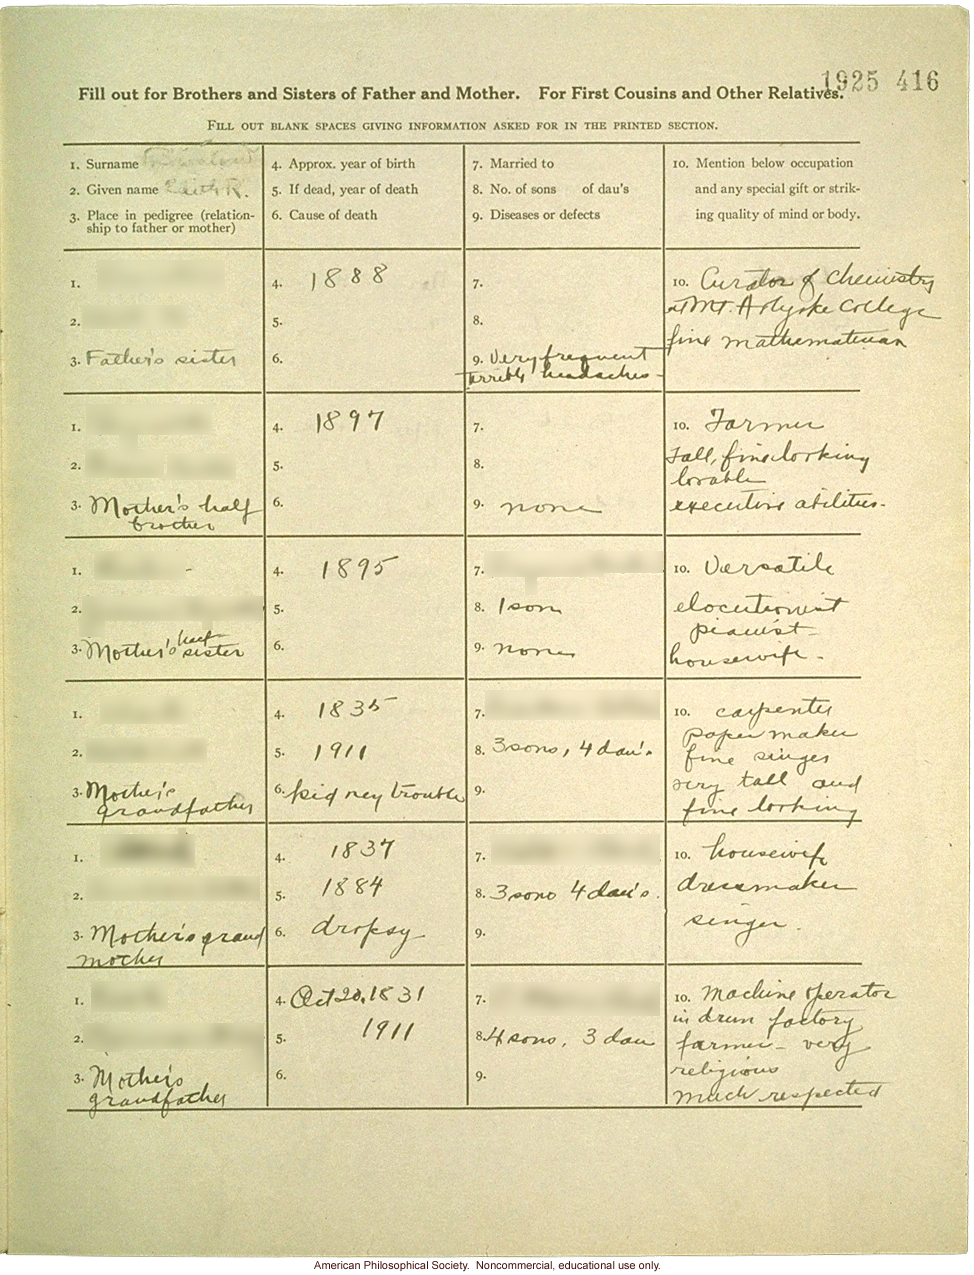 1925 416
Fill out for Brothers and Sisters of Father and Mother. For First Cousins and Other Relatives.
FILL OUT BLANK SPACES GIVING INFORMATION ASKED FOR IN THE PRINTED SECTION.
1. Surname
2. Given name Edith R.
3. Place in pedigree (relation-
ship to father or mother)
4. Approx. year of birth
5. If dead, year of death
6. Cause of death
7. Married to
8. No. of sons of dau's
9. Diseases or defects
10. Mention below occupation
and any special gift or strik-
ing quality of mind or body.
1.
2.
3. Father's sister
4. 1888
5.
6.
7.
8.
9. Very frequent
terrible headaches-
10. Curator of Chemistry
at Mt. Holyoke College
fine mathematician
1.
2.
3. Mother's half
brother
4. 1897
5.
6.
7.
8.
9. none
10. Farmer
Tall, fine looking
lovable
executive abilities-
1.
2.
3. Mother's half
sister
4. 1895
5.
6.
7.
8. 1 son
9. none
10. Versatile
elocutionist
pianist
housewife-
1.
2.
3. Mother's
grandfather
4. 1835
5. 1911
6. kidney trouble
7.
8. 3 sons, 4 dau's
9.
10. carpenter
paper maker
fine singer
very tall and
fine looking
1.
2.
3. Mother's grand
mother
4. 1837
5. 1884
6. dropsy
7.
8. 3 sons 4 dau's.
9.
10. housewife
dressmaker
singer.
1.
2.
3. Mother's
grandfather
4. Oct 20, 1831
5. 1911
6.
7.
8. 4 sons, 3 dau
9.
10. Machine operator
in drum factory
farmer- very
religious
much respected
American Philosophical Society. Noncommercial, educational use only.